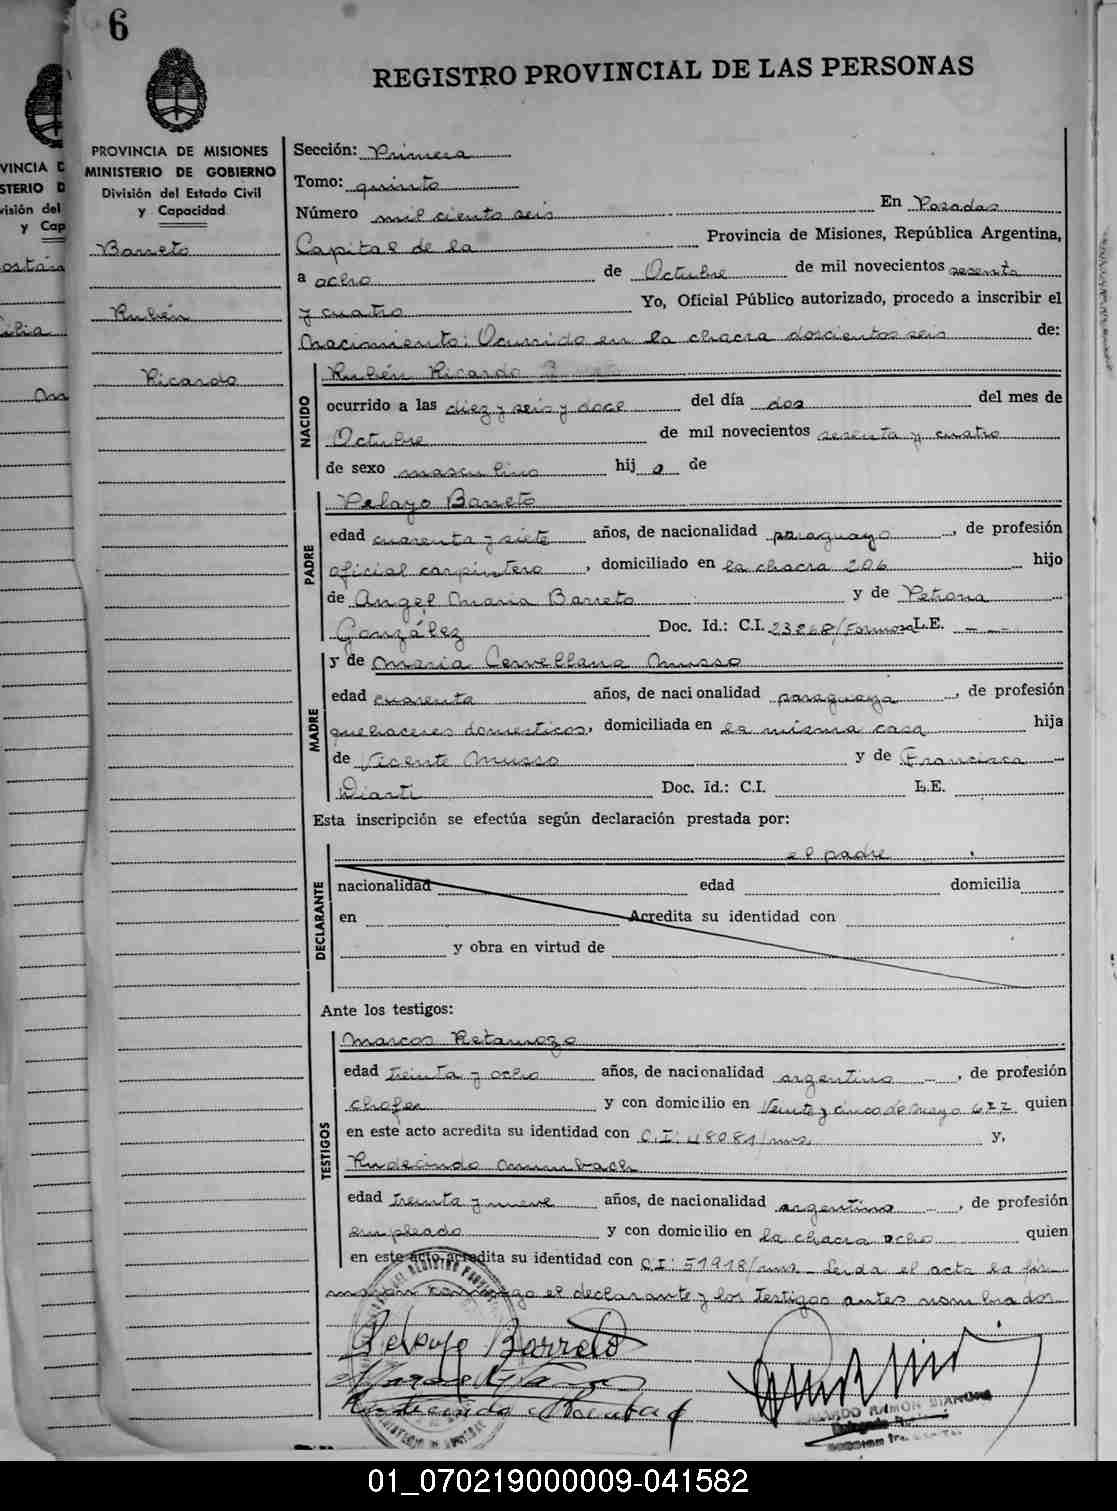 6
REGISTRO PROVINCIAL DE LAS PERSONAS
PROVINCIA DE MISIONES
MINISTERIO DE GOBIERNO
División del Estado Civil
y Capacidad
Barreto
Rubén
Ricardo
Sección: Primera
Tomo: quinto
Número mil ciento seis En Posadas
Capital de la Provincia de Misiones, República Argentina,
a ocho de Octubre de mil novecientos sesenta
y cuatro Yo, Oficial Público autorizado, procedo a inscribir el
nacimiento: Ocurrido en la chacra doscientos seis de:
NACIDO
Rubén Ricardo
ocurrido a las diez y seis y doce del día dos del mes de
Octubre de mil novecientos sesenta y cuatro
de sexo masculino hij o de
PADRE
Pelayo Barreto
edad cuarenta y siete años, de nacionalidad paraguayo, de profesión
oficial carpintero, domiciliado en la chacra 206 hijo
de Angel Maria Barreto y de Petrona
González Doc. Id.: C.I. 23868/Formosa L.E. - - -
MADRE
y de Maria Cervellana Musso
edad cuarenta años, de nacionalidad paraguaya, de profesión
quehaceres domesticos, domiciliada en la misma casa hija
de Vicente Musso y de Francisca
Diarti Doc. Id.: C.I. L.E.
Esta inscripción se efectúa según declaración prestada por:
DECLARANTE
el padre
nacionalidad edad domicilia
en Acredita su identidad con
y obra en virtud de
Ante los testigos:
TESTIGOS
Marcos Retamozo
edad treinta y ocho años, de nacionalidad argentino, de profesión
chofer y con domicilio en Veinte y cinco de mayo 622 quien
en este acto acredita su identidad con C.I: 48081/mns. y,
Rudecindo Mumbach
edad treinta y nueve años, de nacionalidad argentino, de profesión
empleado y con domicilio en la chacra ocho quien
en este acto acredita su identidad con C.I: 51918/mns. Leida el acta la fir-
man conmigo el declarante y los testigos antes nombrados
Pelayo Barreto
01_070219000009-041582